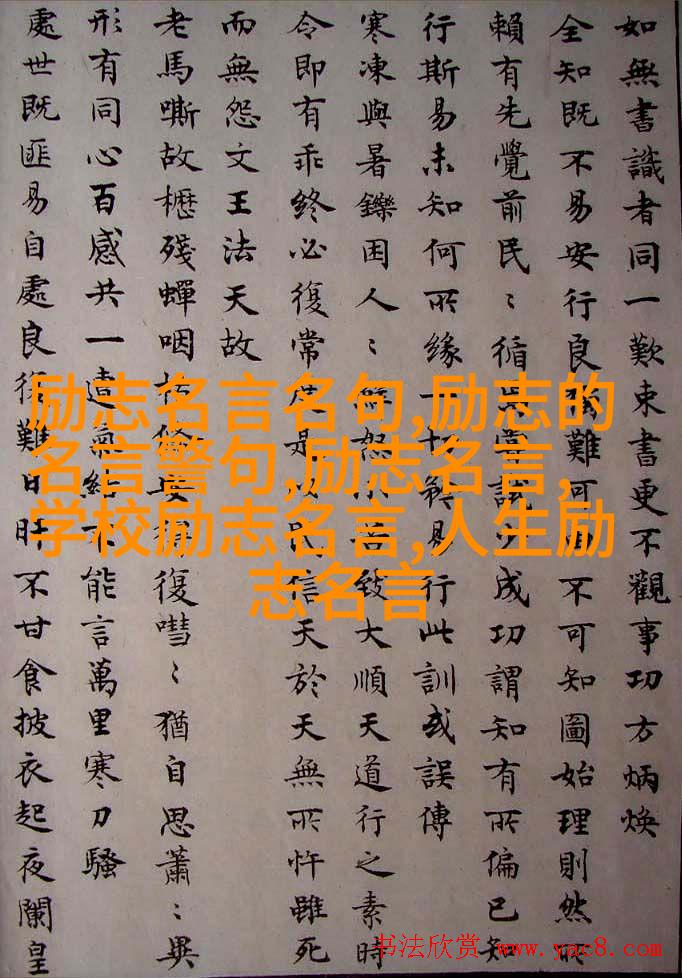 如無書識者同一歎束書更不觀事功方炳煥
全知既不易安行良難可不可知圖始理則然所
賴有先覺前民〻循當成功謂知有所偏已知
行斯易未知何所緣一切解易行此訓或誤傳
寒凍與暑鑠困人〻怒小致大順天道行之素時
令即有乖終必復常是信天於天無所忤雖死
而無怨文王法天故
老馬嘶故櫪殘蟬咽復嘒〻猶自思蕭〻異
形有同心百感共一氣結能言萬里寒刀騷
處世既匪易自處良難日旰不甘食披衣起夜闌皇
励志名言名句,励志的
名言警句,励志名言,
学校励志名言,人生励
志名言
书法欣赏 www.yac8.com